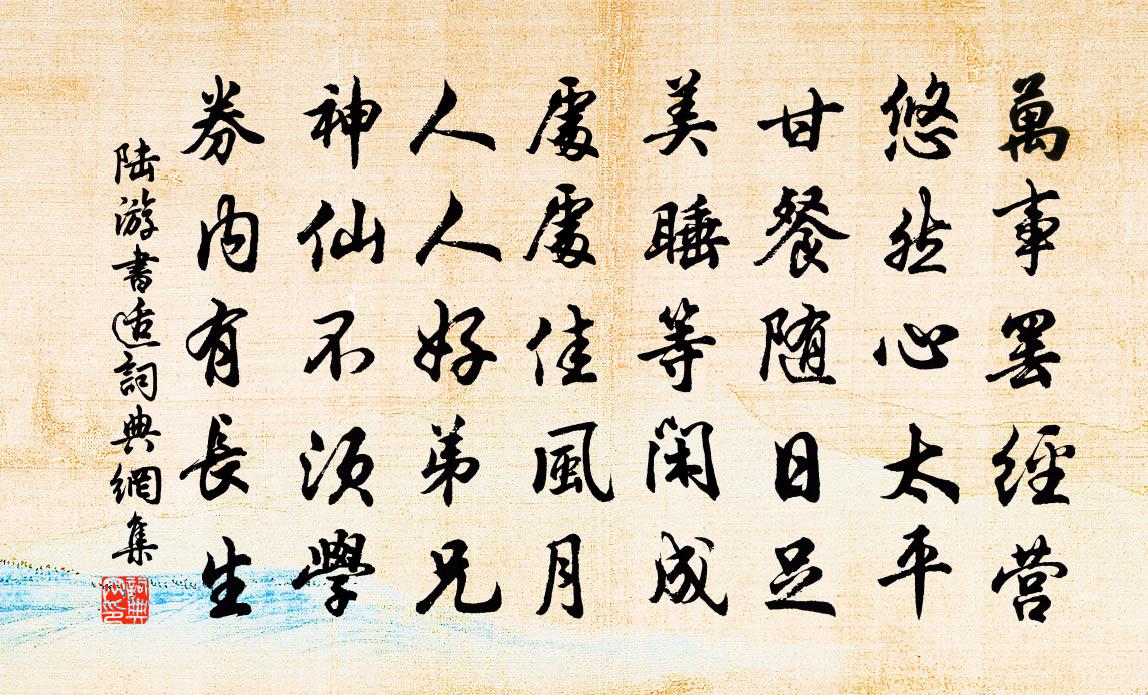 萬事罢經营
悠然心太平
甘餐随日足
美睡等閑成
處處佳風月
人人好弟兄
神仙不須學
券内有長生
陆游書适詞典網集